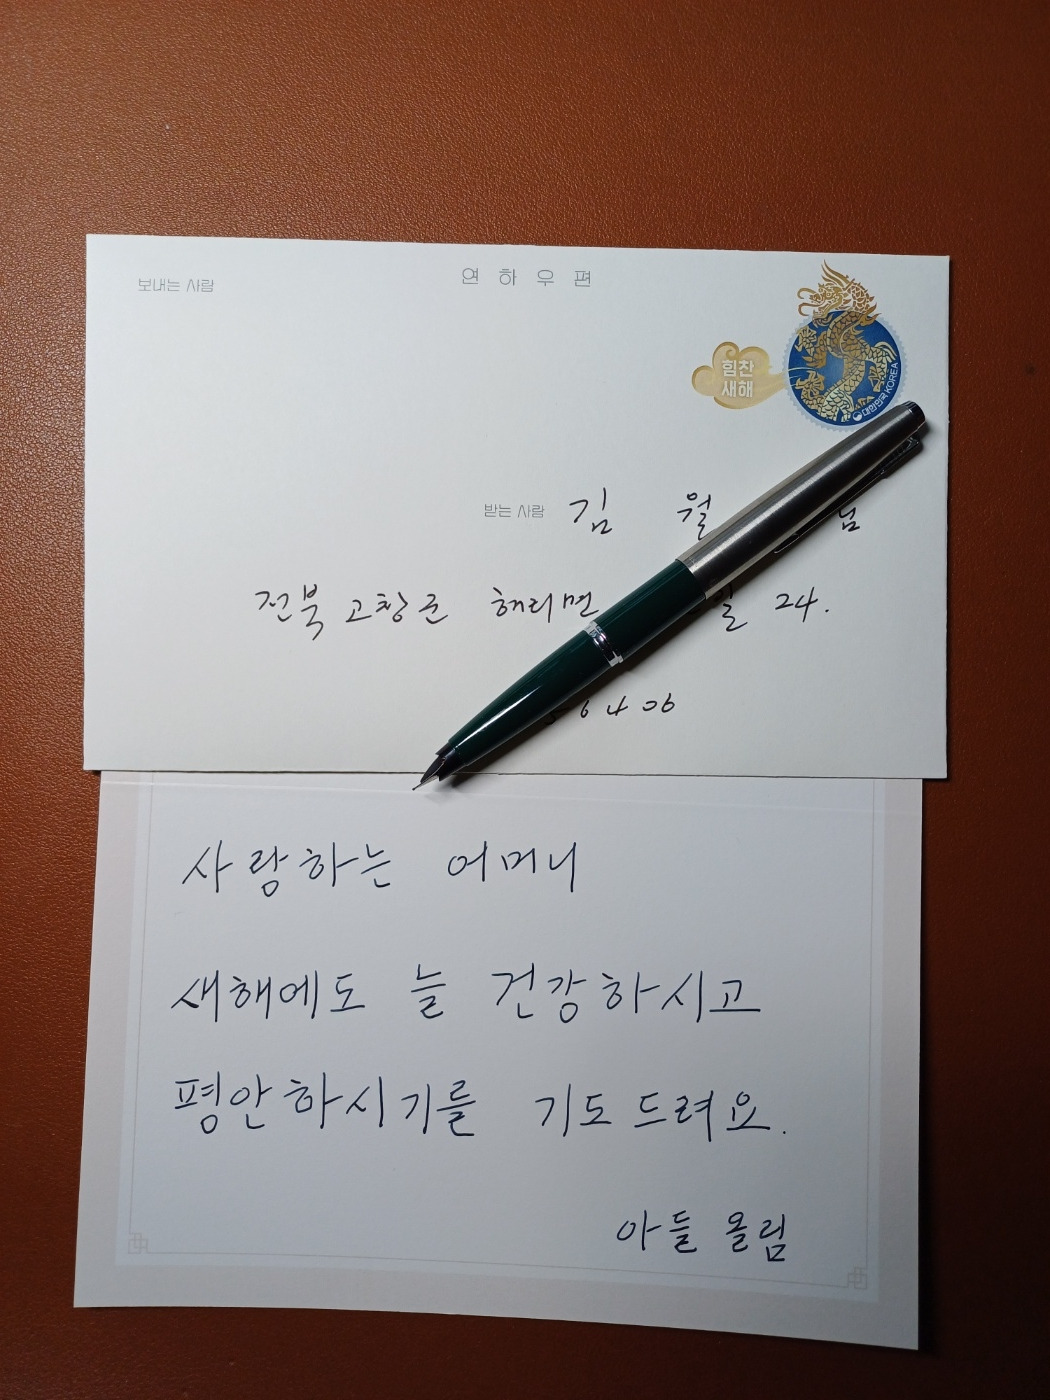 보내는 사람
연하우편
힘찬
새해
대한민국 KOREA
받는 사람 김 월 님
전북 고창군 해리면 길 24.
6406
사랑하는 어머니
새해에도 늘 건강하시고
평안하시기를 기도드려요.
아들 올림